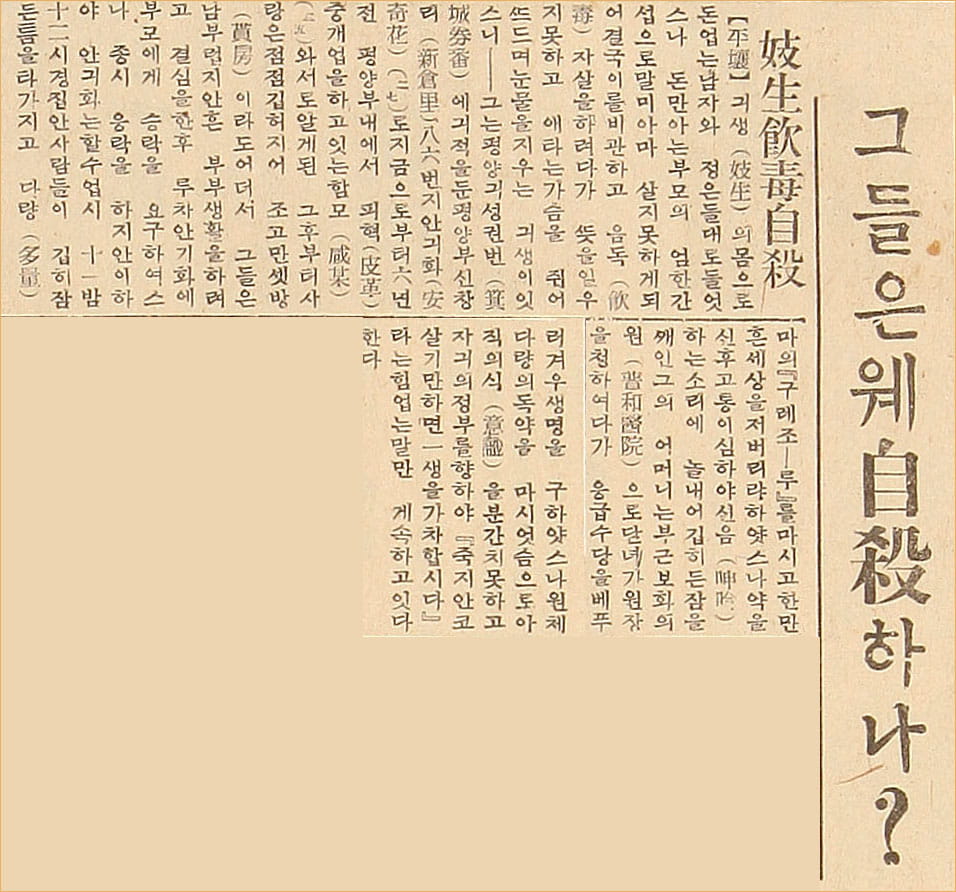 그들은웨自殺하나?
妓生飮毒自殺
【平壤】긔생(妓生)의몸으로
돈업는남자와 정은들대로들엇
스나 돈만아는부모의 엄한간
섭으로말미아마 살지못하게되
어결국이를비관하고 음독(飮
毒)자살을하려다가 뜻을일우
지못하고 애타는가슴을 쥐어
뜨드며눈물을지우는 긔생이잇
스니——그는평양긔성권번(箕
城券番)에긔적을둔평양부신창
리(新倉里)八六번지안긔화(安
奇花)(二七)로지금으로부터六년
전 평양부내에서 피혁(皮革)
중개업을하고잇는함모(咸某)
와서로알게된 그후부터사
랑은점점깁허지어 조고만셋방
(貰房)이라도어더서 그들은
남부럽지안흔 부부생활을하려
고 결심을한후 루차안기화에
부모에게 승락을 요구하여스
나 종시 응락을 하지안이하
야 안긔화는할수업시 十一밤
十二시경집안사람들이 깁히잠
든틈을타가지고 다량(多量)
마의『구레조—루』를마시고한만
흔세상을저버리랴하얏스나약을
선후고통이심하야신음(呻吟)
하는소리에 놀내어깁히든잠을
깨인그의 어머니는부근보화의
원(普和醫院)으로단녀가원장
을청하여다가 응급수당을베푸
러겨우생명을 구하얏스나원체
다량의독약음 마시엇슴으로아
직의식(意識)을분간치못하고
자긔의정부를향하야『죽지안코
살기만하면一生을가차합시다』
라는힘업는말만 게속하고잇다
한다